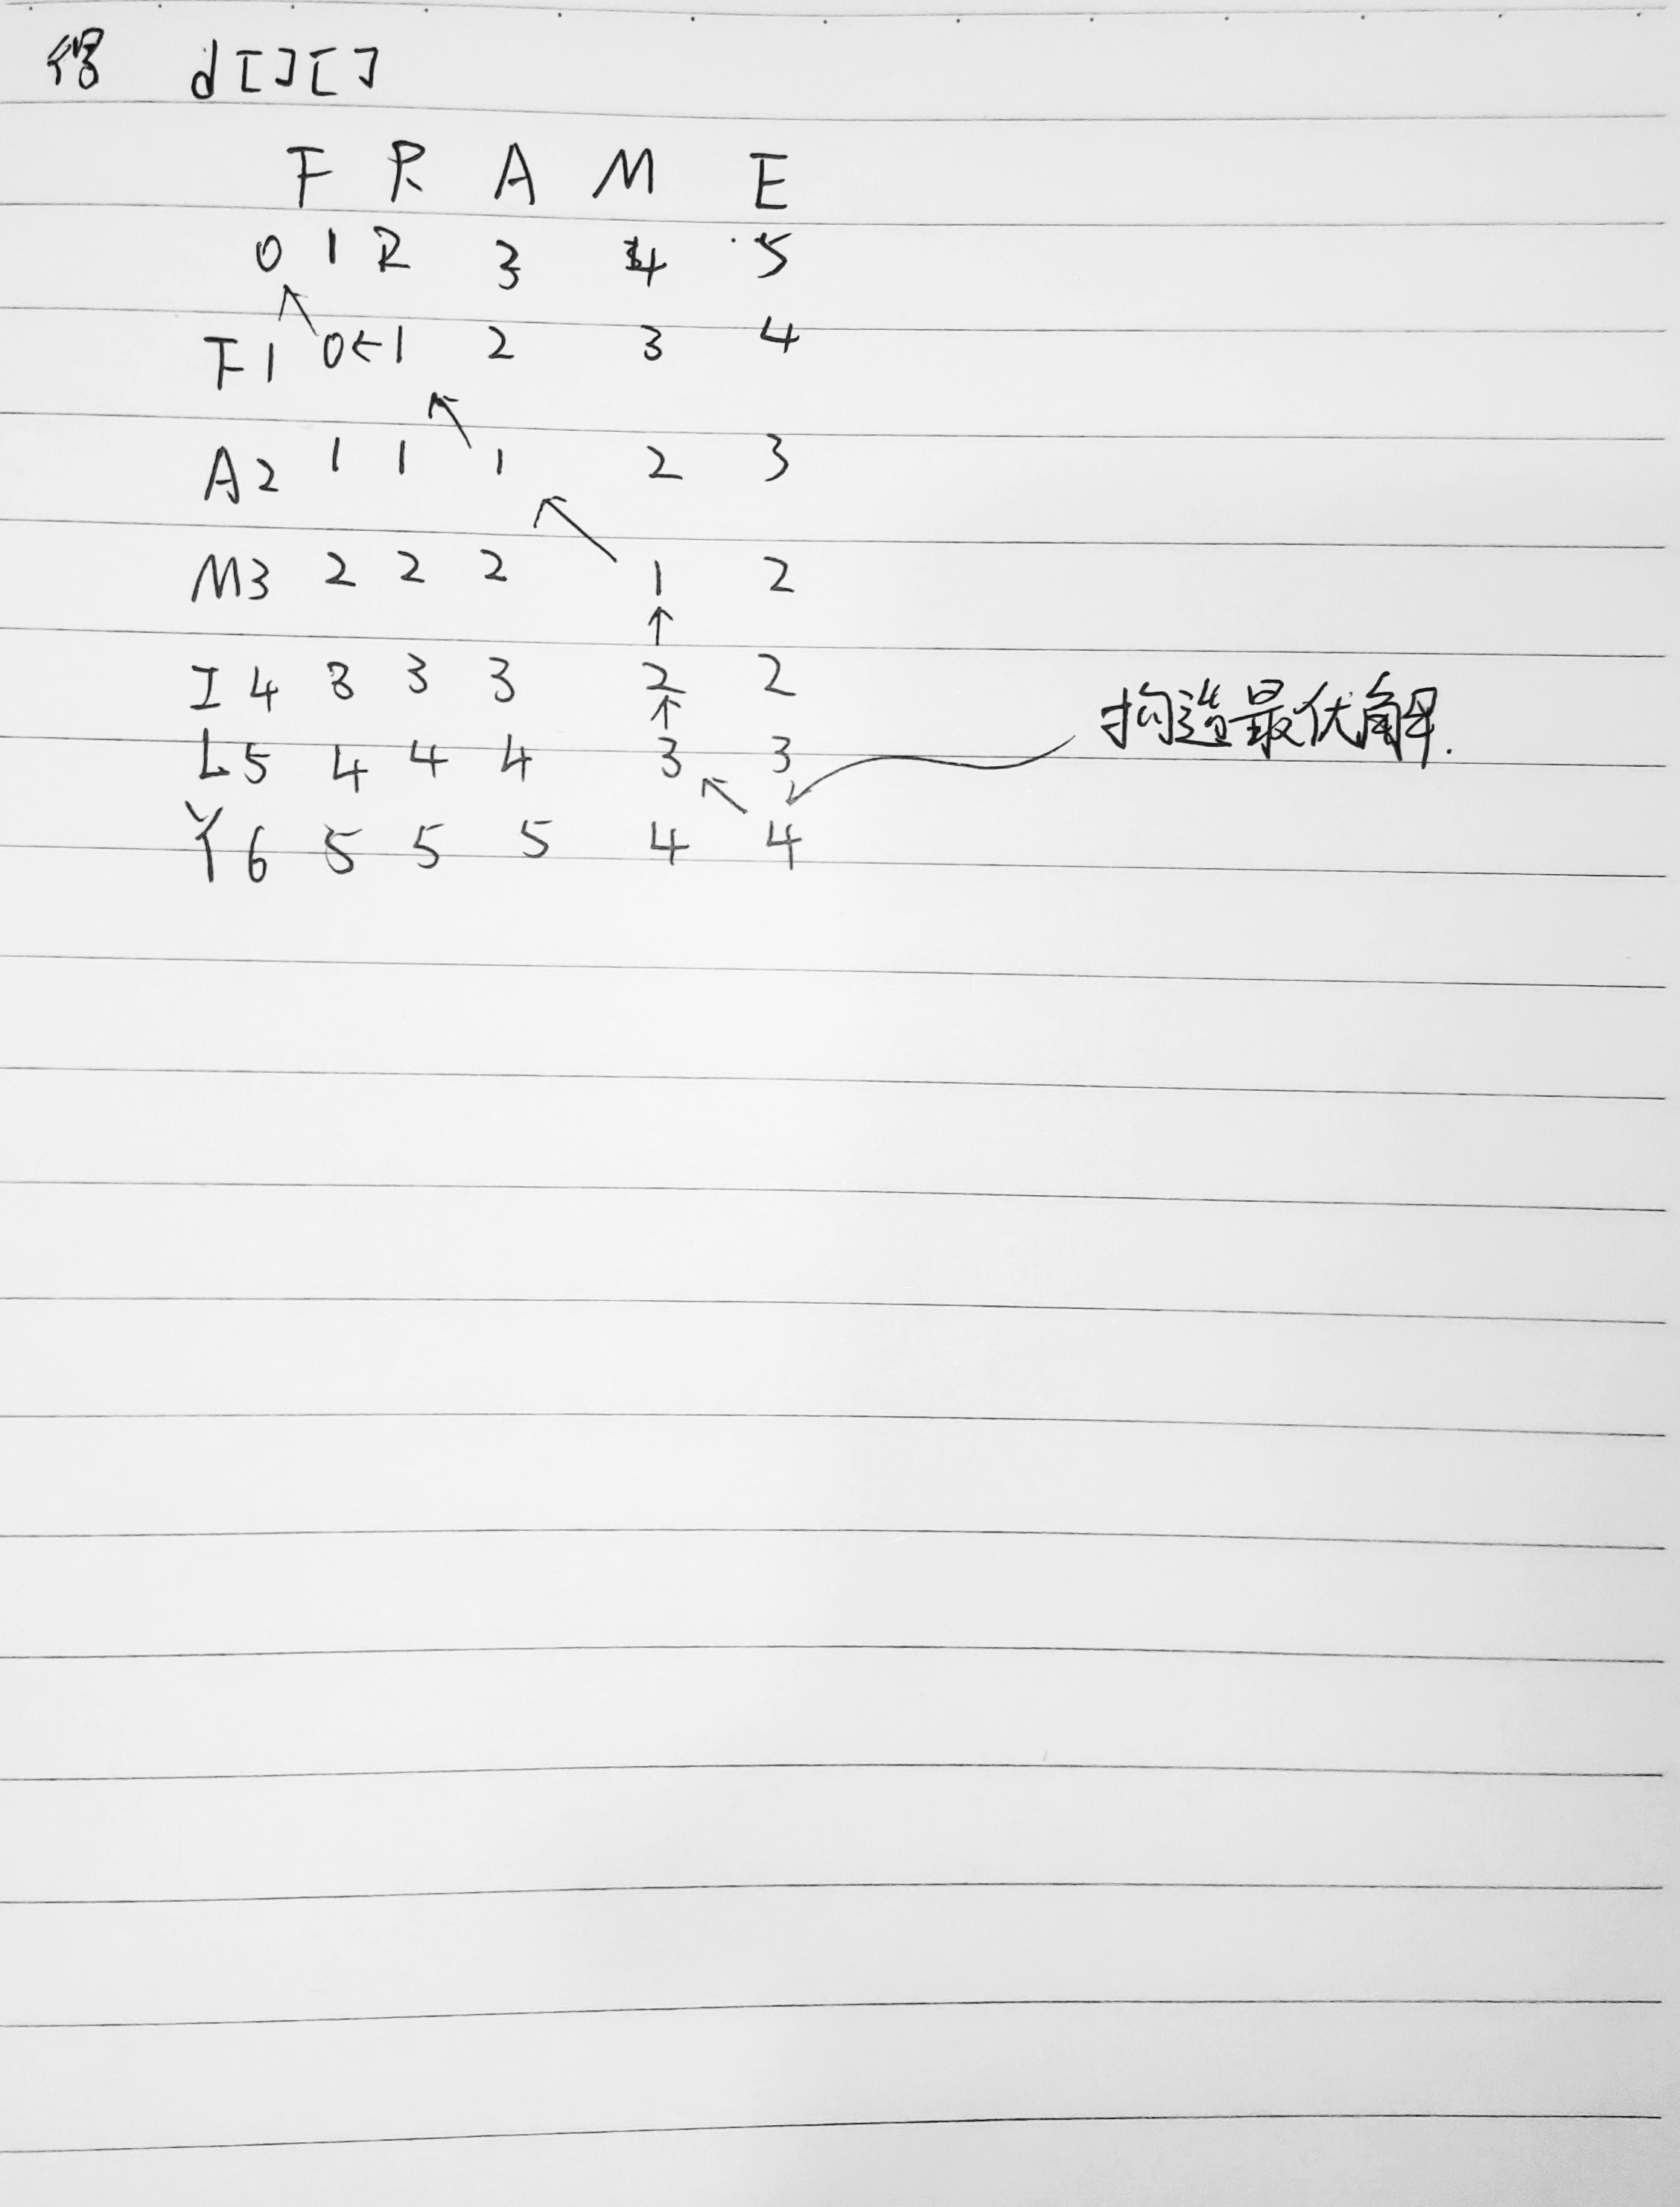 得 d[][]
F R A M E
0 1 2 3 4 5
F 1 0 ← 1 2 3 4
A 2 1 1 1 2 3
M 3 2 2 2 1 2
I 4 3 3 3 2 2
构造最优解.
L 5 4 4 4 3 3
Y 6 5 5 5 4 4